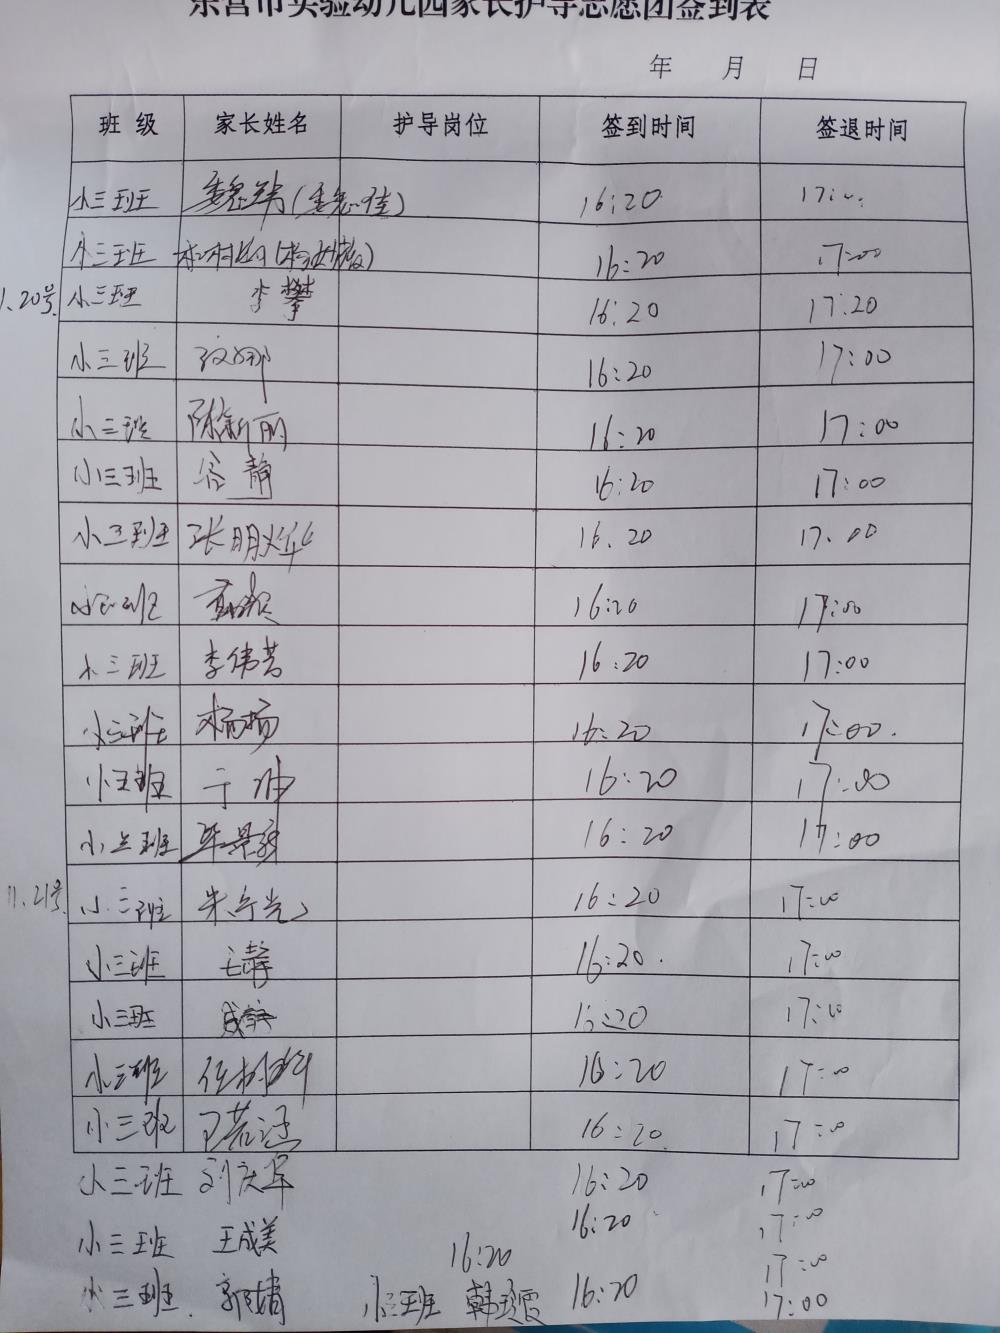 东营市实验幼儿园家长护导志愿团签到表
年 月 日
班 级 家长姓名 护导岗位 签到时间 签退时间
小三班 16:20 17:00
小三班 16:20 17:00
1.20号 小三班 李攀 16:20 17:20
小三班 16:20 17:00
小三班 陈新丽 16:20 17:00
小三班 谷静 16:20 17:00
小三班 张明烨 16.20 17.00
小三班 16:20 17:00
小三班 李伟芳 16:20 17:00
小三班 杨杨 16:20 17:00.
小三班 于坤 16:20 17:00
小三班 16:20 17:00
11.21号. 小三班 16:20 17:00
小三班 王静 16:20. 17:00
小三班 16:20 17:00
小三班 16:20 17:00
小三班 王若涵 16:20 17:00
小三班 刘庆军 16:20 17:00
小三班 王成美 16:20 17:00
16:20 17:00
小三班 郭婧 小三班 16:20 17:00